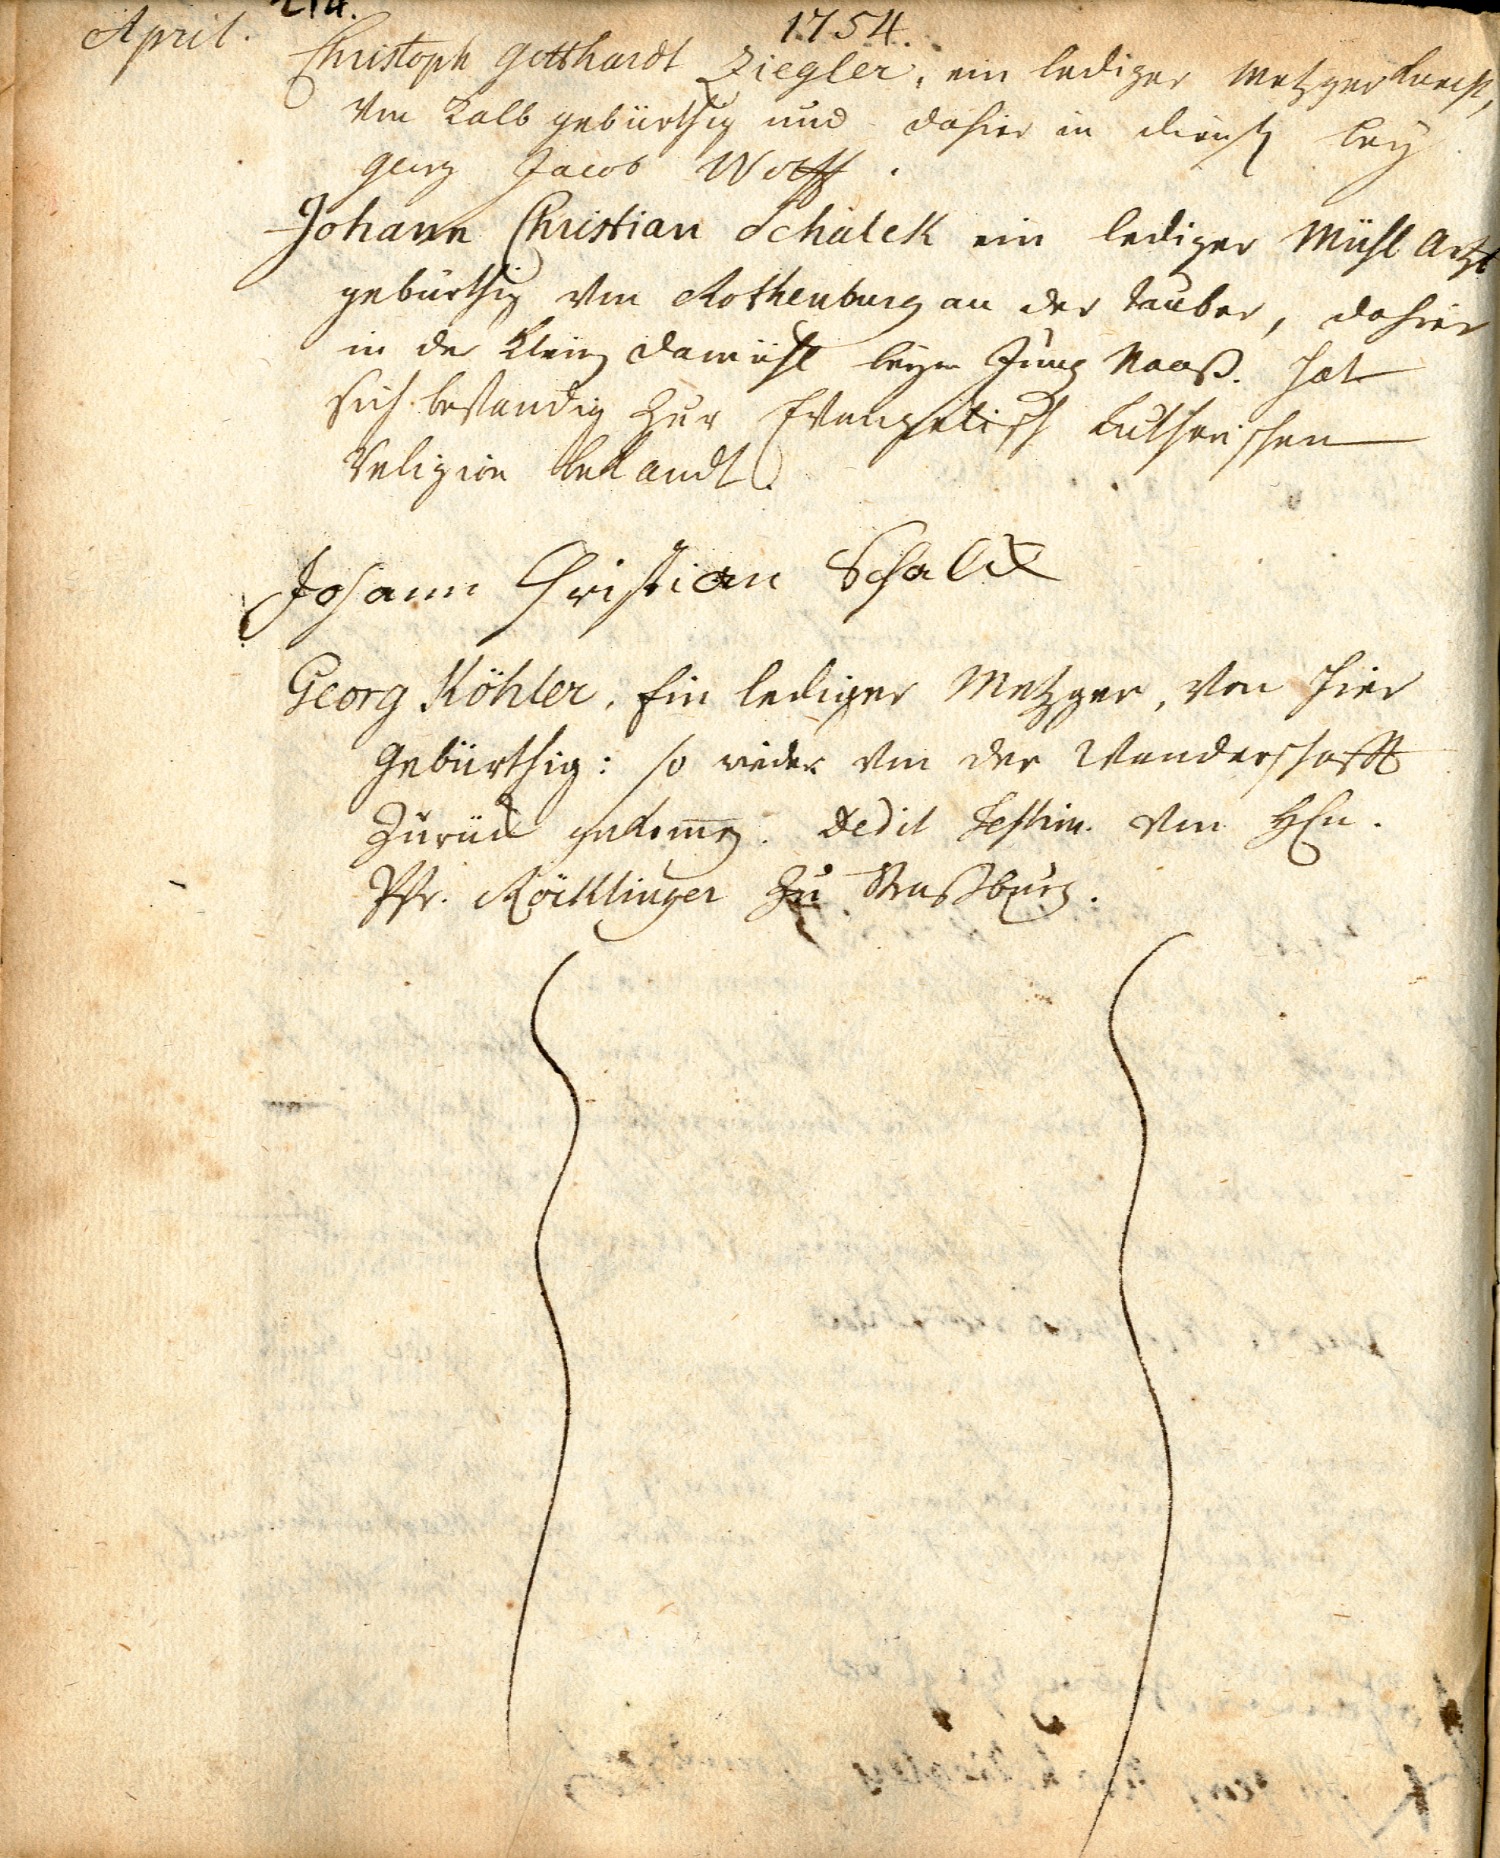 April. 214. 1754.
Christoph Gotthardt Ziegler, ein lediger Metzger Knecht,
von Kalb gebürthig und dahier in dienst bey
Georg Jacob Wolff.
Johann Christian Schalck ein lediger Mühl Artzt
gebürthig von Rothenburg an der Tauber, dahier
in der Kleinen beym Jung Maaß. hat
sich beständig zur Evangelisch Lutherischen
Religion bekandt.
Johann Christian Schalck
Georg Köhler, Ein lediger Metzger, von hier
Gebürthig: so wieder von der Wanderschafft
zurück gekomen. Dedit Testim. von HEn.
Pfr. Röcklinger zu Straßburg.